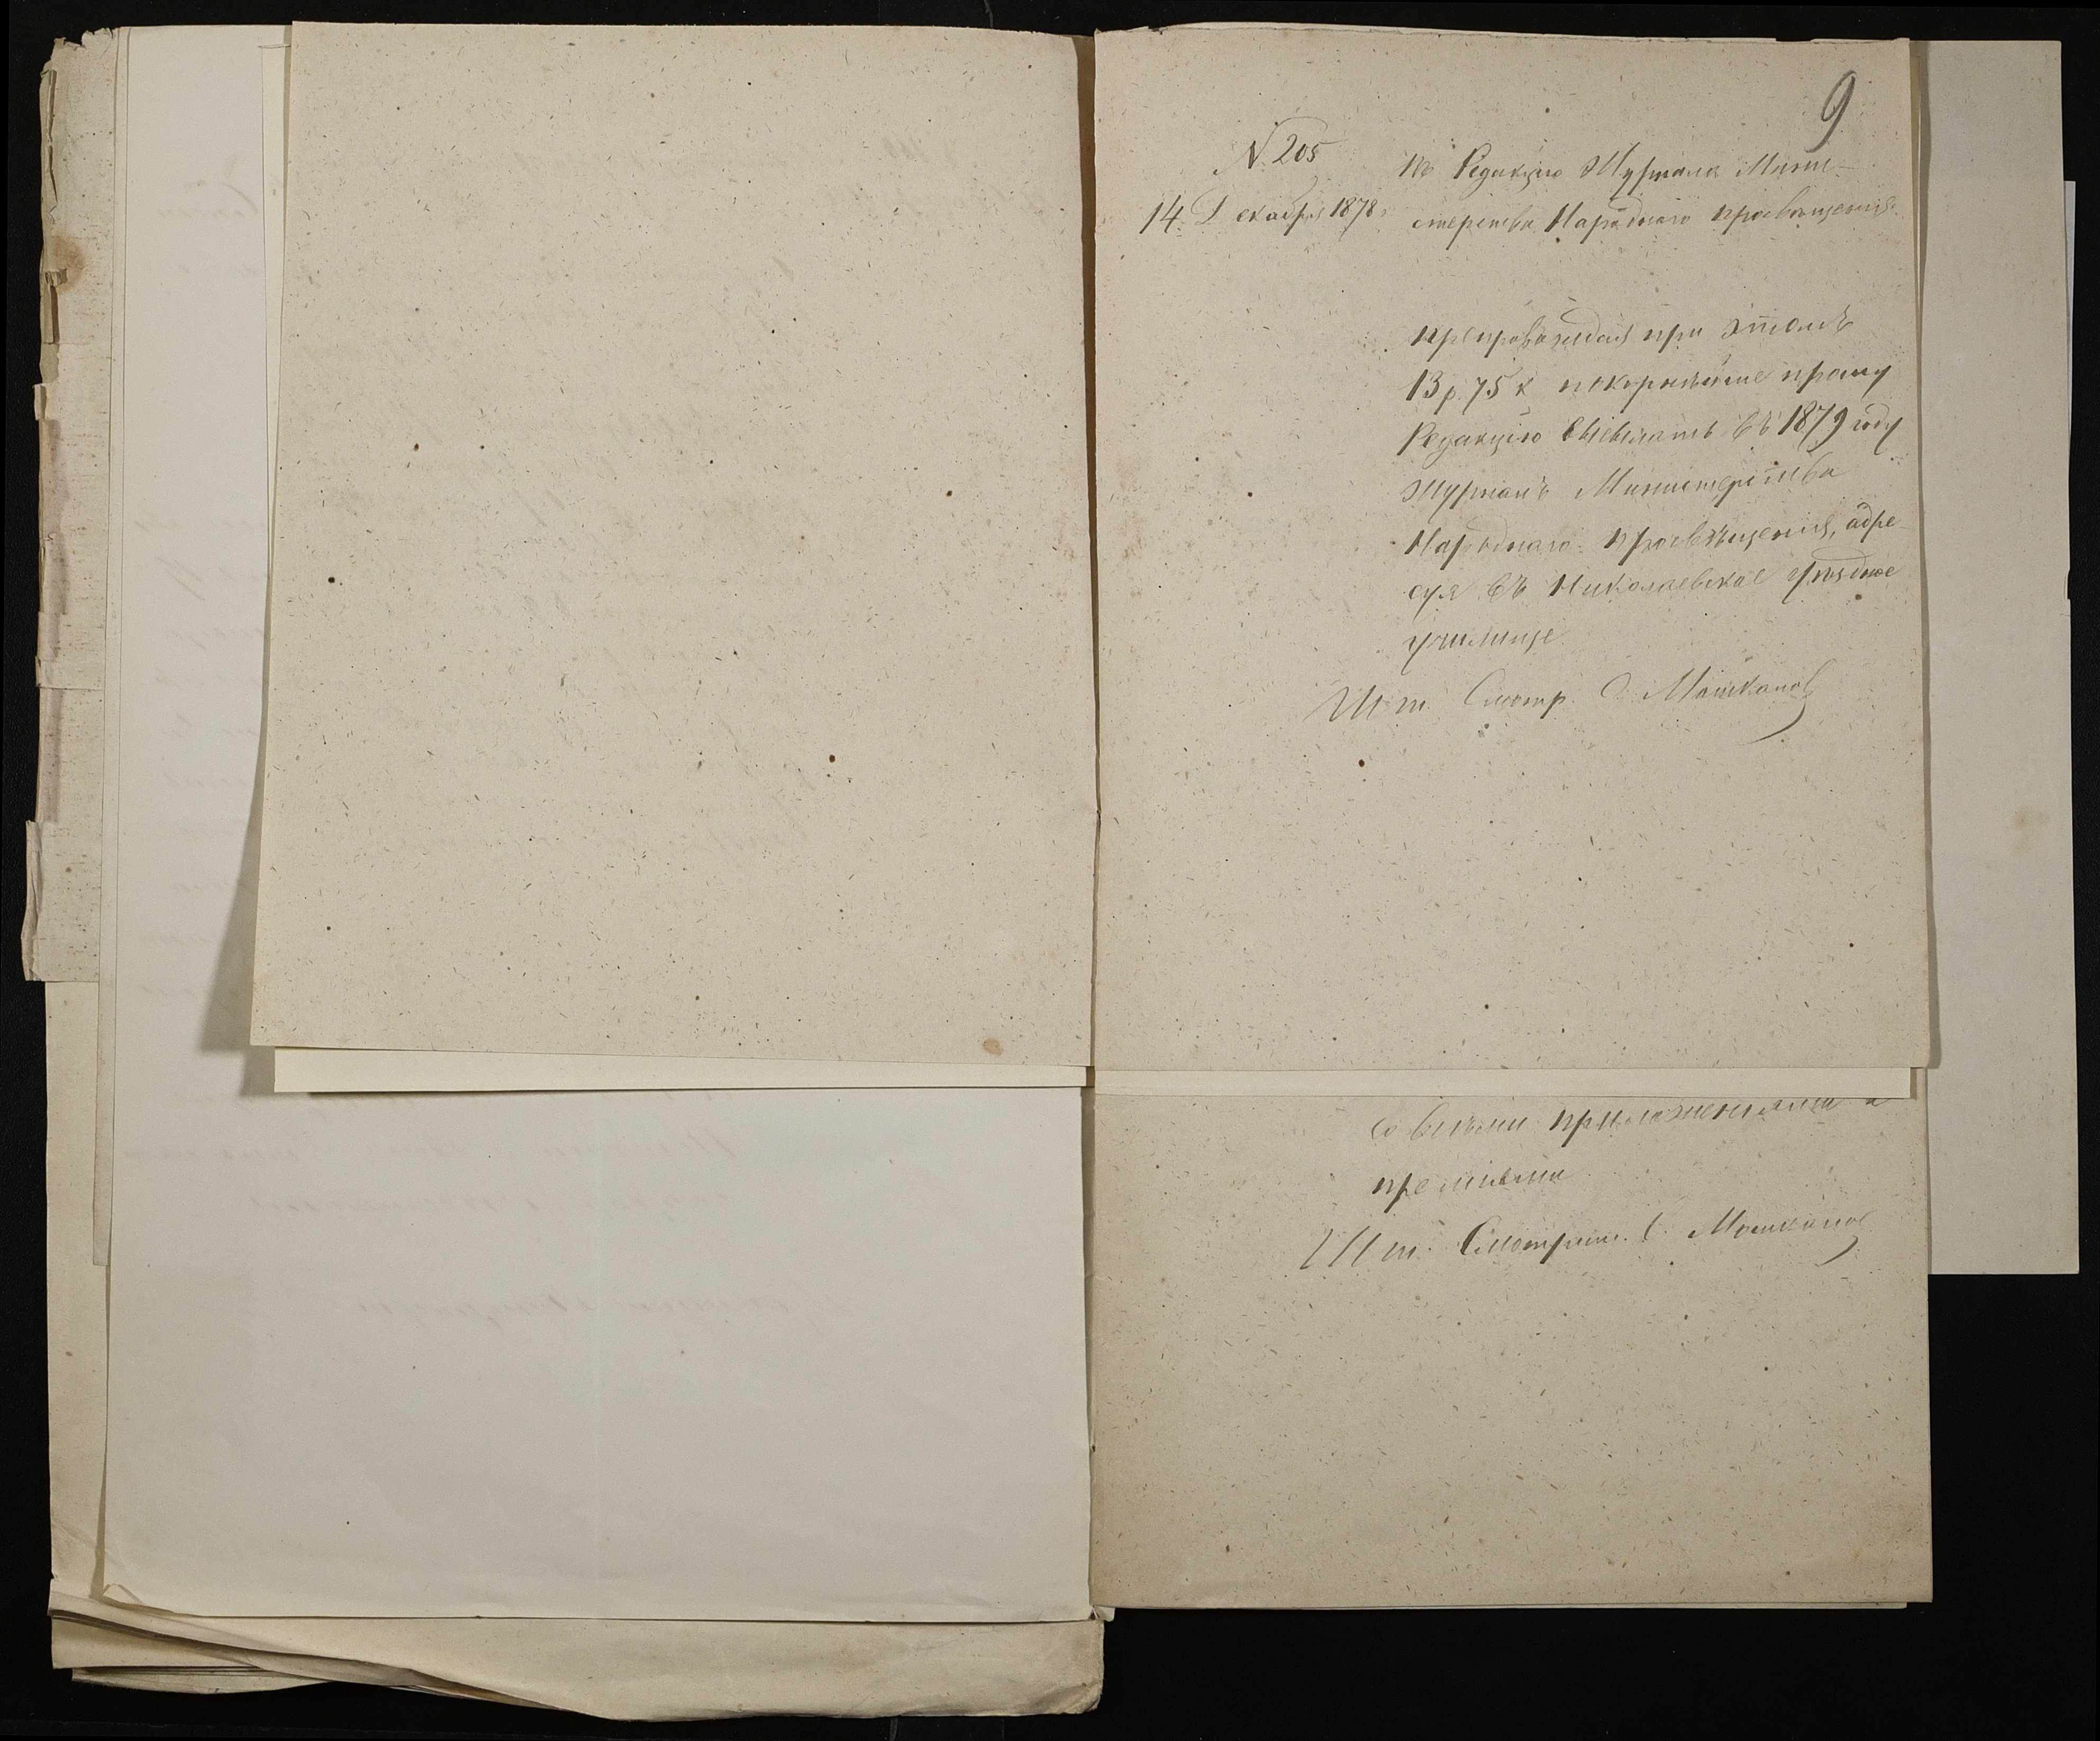 9
№ 205
14 Декабря 1878
Въ Редакцію Журнала Мини-
стерства Народнаго просвѣщенія.
Препровождая при этомъ
13 р. 75 к покорнѣйше прошу
Редакцію высылать въ 1879 году
Журналъ Министерства
Народнаго просвѣщенія, адре-
суя въ Николаевское уѣздное
училище
Шт. Смотр. С. Машканов
со всѣми приложеніями и
преміями
Шт. Смотрит. С. Машканов